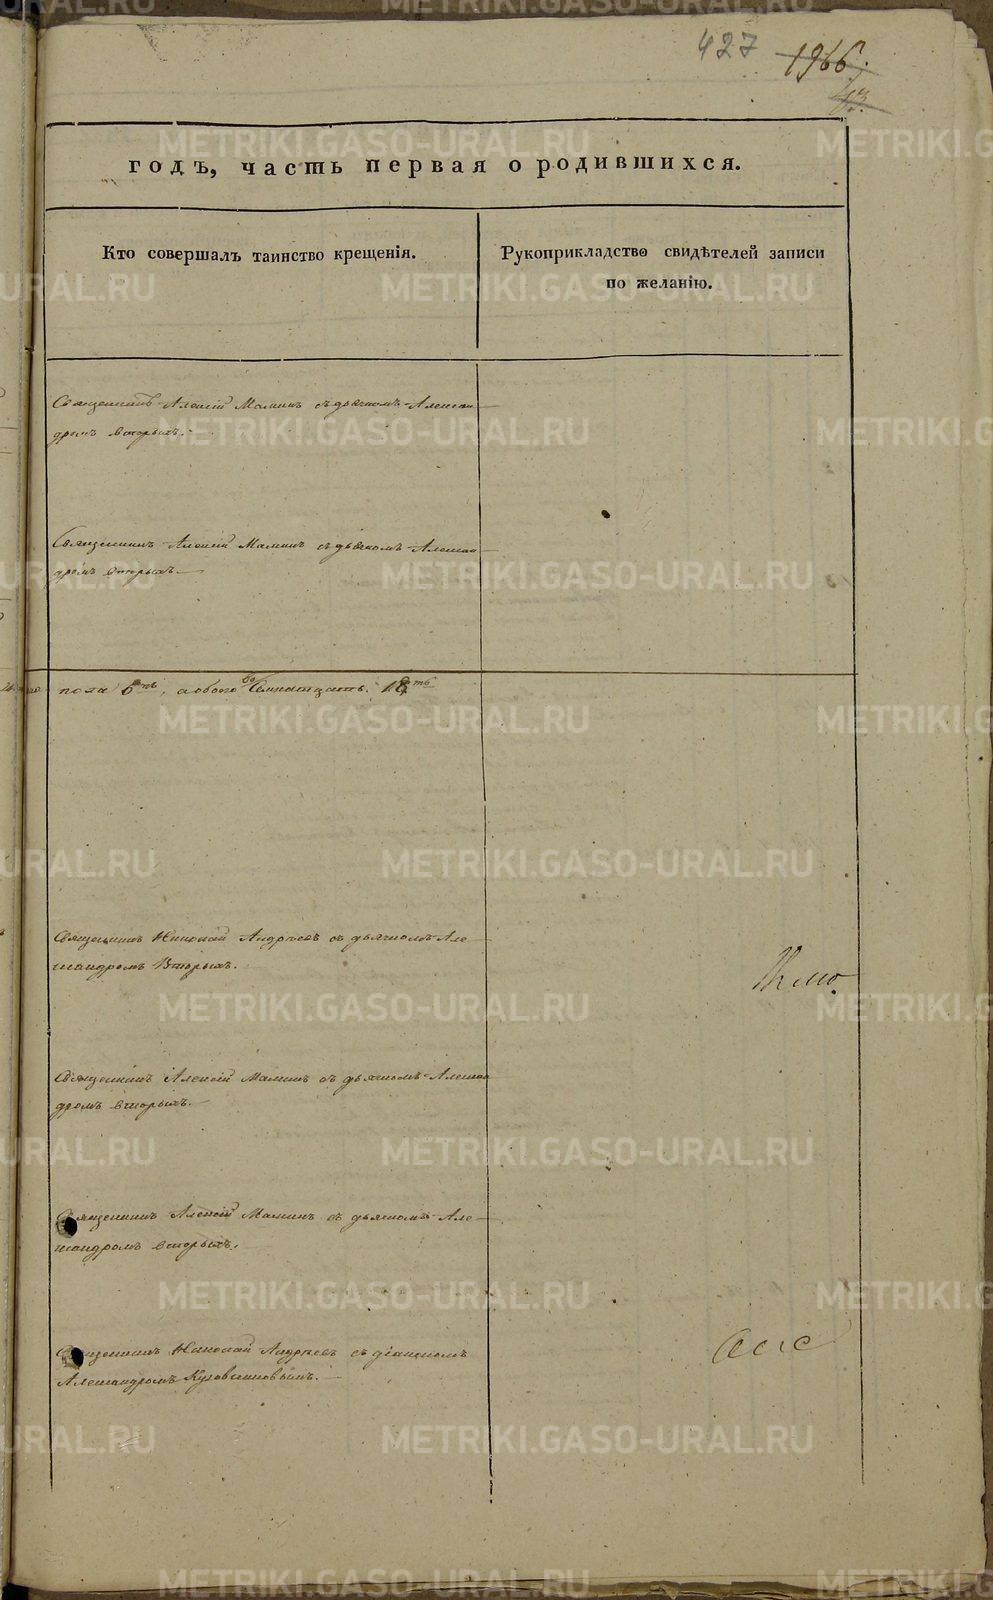 427 1966.
годъ, часть первая о родившихся.
Кто совершалъ таинство крещенія.
Рукоприкладство свидѣтелей записи
по желанію.
Священникъ Алексій Маминъ съ дьячкомъ Алексан
дромъ вторыхъ.
Священникъ Алексій Маминъ съ дьячкомъ Алексан
дромъ вторыхъ.
пола 6ть, а обоего 18ть
Священникъ Николай Андреевъ съ дьячкомъ Але
ксандромъ Вторыхъ.
Священникъ Алексій Маминъ съ дьячкомъ Алексан
дромъ вторыхъ.
Священникъ Алексій Маминъ съ дьячкомъ Але
ксандромъ вторыхъ.
Священникъ Николай Андреевъ съ діакономъ
Александромъ
METRIKI.GASO-URAL.RU